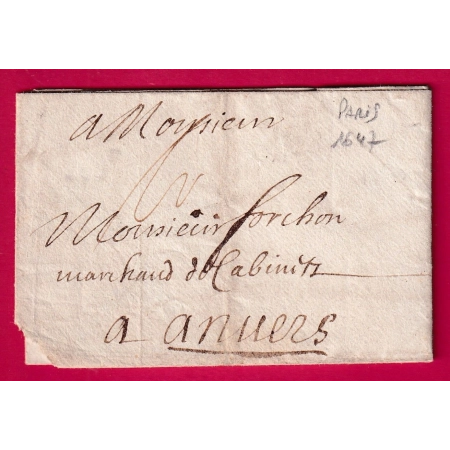 a Monsieur
PARIS
1647
Monsieur forchon
marchand de Cabinets
a anuers